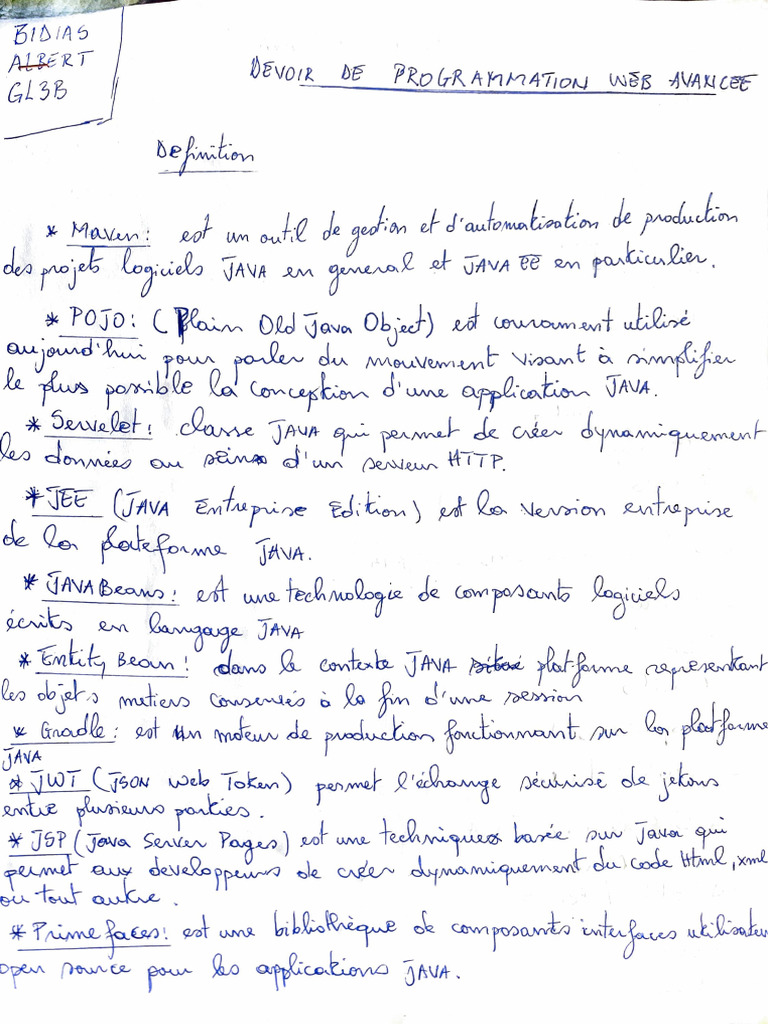 BIDIAS
ALBERT
GL3B
DEVOIR DE PROGRAMMATION WEB AVANCEE
Definition
* Maven : est un outil de gestion et d'automatisation de production
des projets logiciels JAVA en general et JAVA EE en particulier.
* POJO : (Plain Old Java Object) est courament utilisé
aujourd'hui pour parler du mouvement visant à simplifier
le plus possible la conception d'une application JAVA.
* Servelet : classe JAVA qui permet de créer dynamiquement
les données au sein d'un serveur HTTP.
* JEE (JAVA Entreprise Edition) est la version entreprise
de la plateforme JAVA.
* JAVABeans : est une technologie de composants logiciels
écrits en langage JAVA
* Entity Bean : dans le contexte JAVA platforme representant
les objets metiers conservés à la fin d'une session
* Gradle : est un moteur de production fonctionnant sur la platforme
JAVA
* JWT (JSON Web Token) permet l'échange sécurisé de jetons
entre plusieurs parties.
* JSP (Java Server Pages) est une technique basée sur Java qui
permet aux developpeurs de créer dynamiquement du code Html, xml
ou tout autre.
* Prime faces : est une bibliothèque de composants interfaces utilisateur
open source pour les applications JAVA.